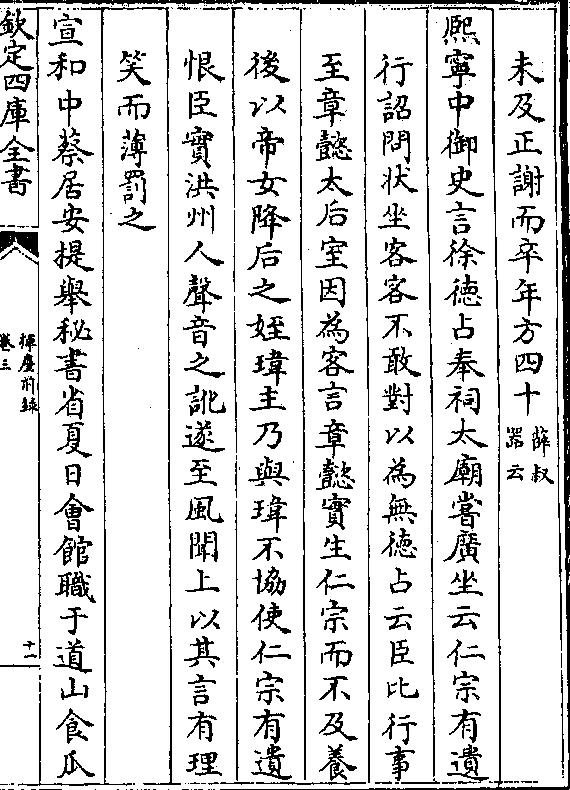 未及正謝而卒年方四十薛叔
器云
熙寧中御史言徐德占奉祠太廟嘗廣坐云仁宗有遺
行詔問狀坐客客不敢對以為無德占云臣比行事
至章懿太后室因為客言章懿實生仁宗而不及養
後以帝女降后之姪瑋主乃與瑋不協使仁宗有遺
恨臣實洪州人聲音之訛遂至風聞上以其言有理
笑而薄罰之
宣和中蔡居安提舉秘書省夏日會館職于道山食瓜
欽定四庫全書
揮麈前錄
卷三
十一